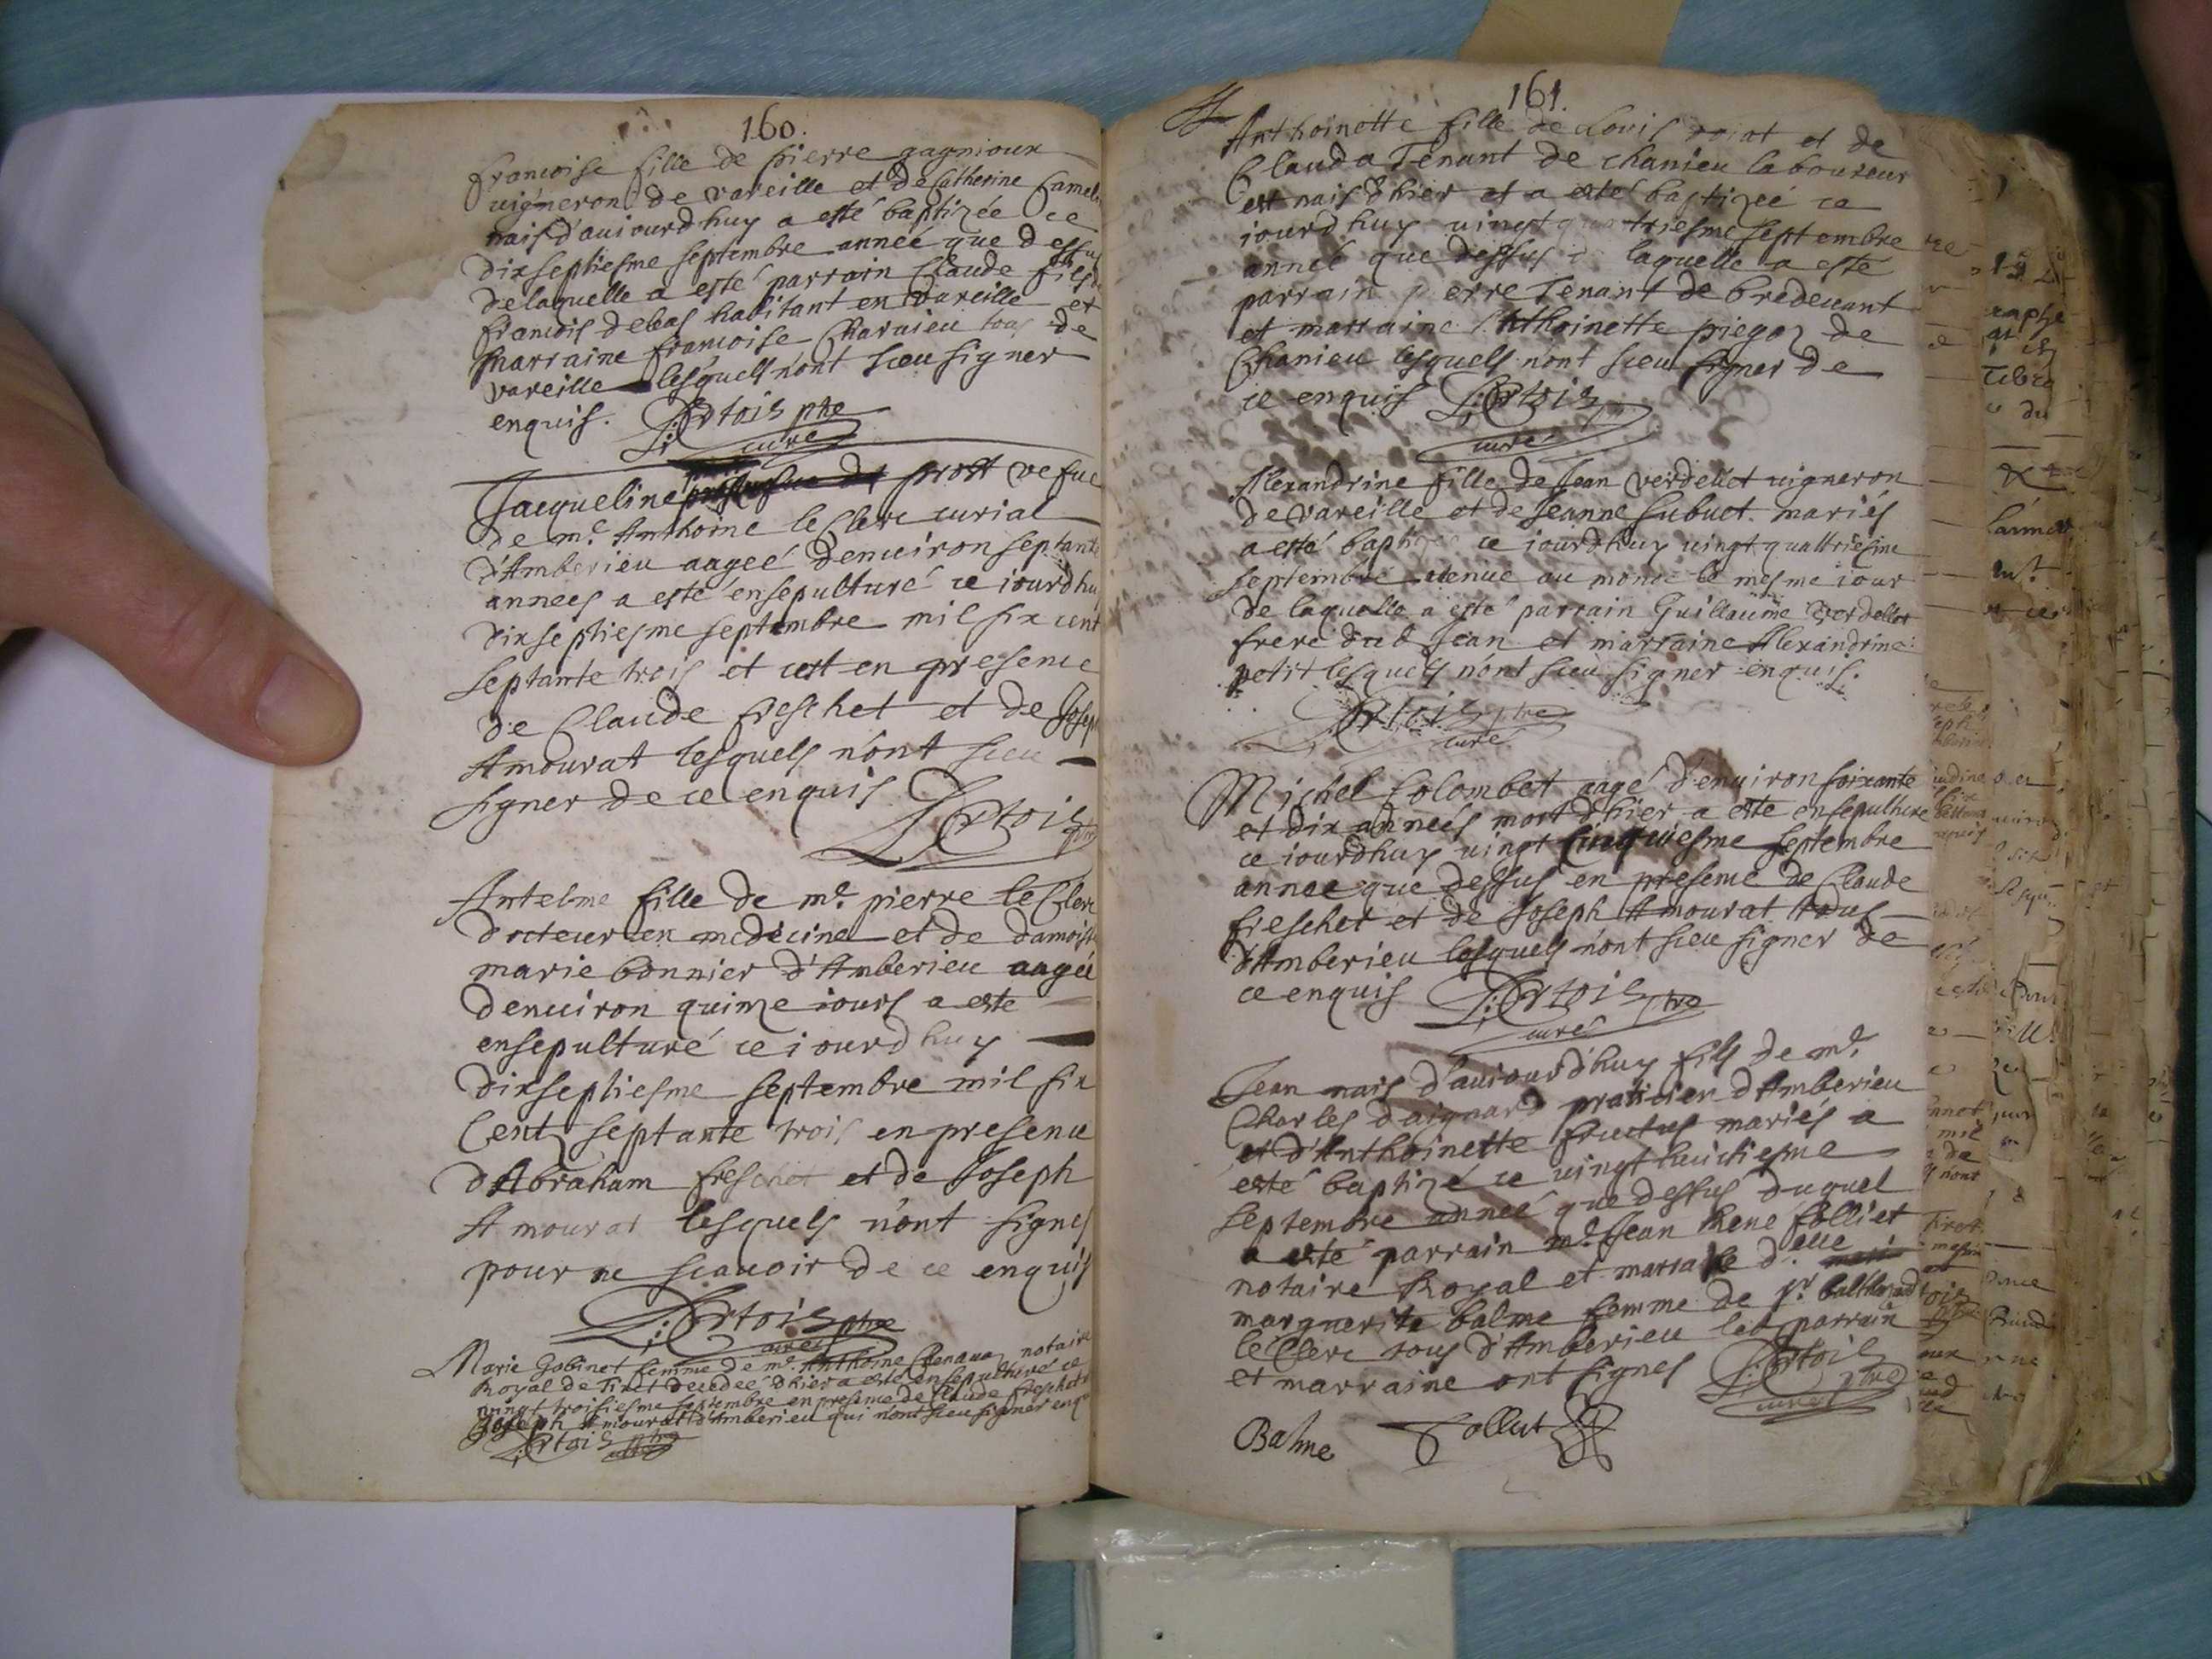 160.
francoise fille de pierre gagnioux
vigneron de vareille et de Catherine Camel
nais d'auiourdhuy a esté baptizée ce
dixseptiesme septembre anneé que dessus
de laquelle a esté parrain Claude fils de
francois debas habitant en vareille et
marraine francoise Charuieu tous de
vareille lesquels n'ont sceu signer
enquis. Ortois pbre
curé
Jacqueline prost vefue
de me. Anthoine le Clerc curial
d'Amberieu aageé denuiron septante
anneés a esté ensepulturé ce iourdhuy
dixseptiesme septembre mil six cent
septante trois et cest en presence
de Claude freschet et de Joseph
Amourat lesquels n'ont sceu
signer de ce enquis
Ortois pbre
Antelme fille de me. pierre le Clerc
docteur en medecine et de damois
marie bonnier d'Amberieu aageé
denuiron quinze iours a esté
ensepulturé ce iourdhuy
dixseptiesme septembre mil six
Cent septante trois en presence
d'Abraham freschet et de Joseph
Amourat lesquels n'ont signes
pour ne scauoir de ce enquis
Ortois pbre
curé
Marie Gobinet femme de me. Anthoine notaire
Royal de Tiret decedeé dhier a esté ensepulturé ce
vingt troisiesme septembre en presence de Claude freschet
Joseph Amourat d'Amberieu qui n'ont sceu signer enquis
Ortois pbre
curé
161.
Anthoinette fille de Louis et de
Clauda Tenant de chanieu laboureur
est nais dhier et a esté baptizeé ce
iourdhuy vingt quattriesme septembre
anneé que dessus laquelle a esté
parrain pierre Tenant de bredeuant
et marraine Anthoinette de
Chanieu lesquels n'ont sceu signer de
ce enquis Ortois
curé
Alexandrine fille de Jean verdellet vigneron
de vareille et de Jeanne mariés
a esté baptizeé ce iourdhuy vingt quattriesme
septembre venue au monde le mesme iour
de laquelle a esté parrain Guillaume verdellet
frere dud Jean et marraine Alexandrine
petit lesquels n'ont sceu signer enquis.
Ortois pbre
curé
Michel Colombet aagé d'enuiron soixante
et dix anneés mort dhier a esté ensepulturé
ce iourdhuy vingt cinquiesme septembre
anneé que dessus en presence de Claude
freschet et de Joseph Amourat tous
d'Amberieu lesquels n'ont sceu signer de
ce enquis Ortois pbre
curé
Jean nais d'auiourd'huy fils de me.
Charles daignard praticien d'Amberieu
et d'Anthoinette fructus mariés a
esté baptizé ce vingt huictiesme
septembre anneé que dessus duquel
a esté parrain me. Jean Rene folliet
notaire Royal et marraine d.elle
marguerite balme femme de sr. balthazard
le Clerc tous d'Amberieu led parrain
et marraine ont signes Ortois pbre
curé
Balme